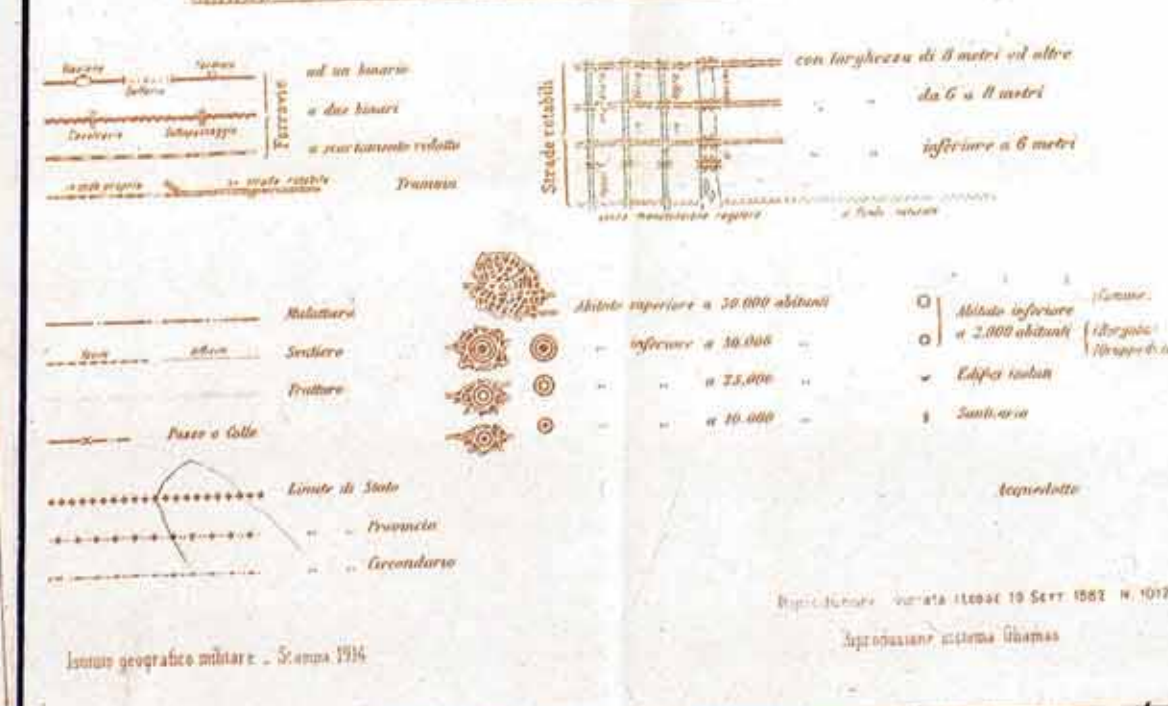 Stazione Fermata
ad un binario
Galleria
a due binari
Cavalcavia Sottopassaggio
Ferrovie
a scartamento ridotto
in sede propria su strada rotabile Tramvia
Strade rotabili
con larghezza di 8 metri ed oltre
„ „ da 6 a 8 metri
„ „ inferiore a 6 metri
senza manutenzione regolare a fondo naturale
Mulattiera
Sentiero
Tratturo
Passo o Colle
Limite di Stato
„ „ Provincia
„ „ Circondario
Abitato superiore a 50.000 abitanti
„ inferiore a 50.000 „
„ „ a 25.000 „
„ „ a 10.000 „
Abitato inferiore
a 2.000 abitanti
Comune
Borgata
Edifici isolati
Acquedotto
Riproduzione vietata (Legge 19 Sett. 1882 N. 1012
Riproduzione sistema
Istituto geografico militare _ Stampa 1914